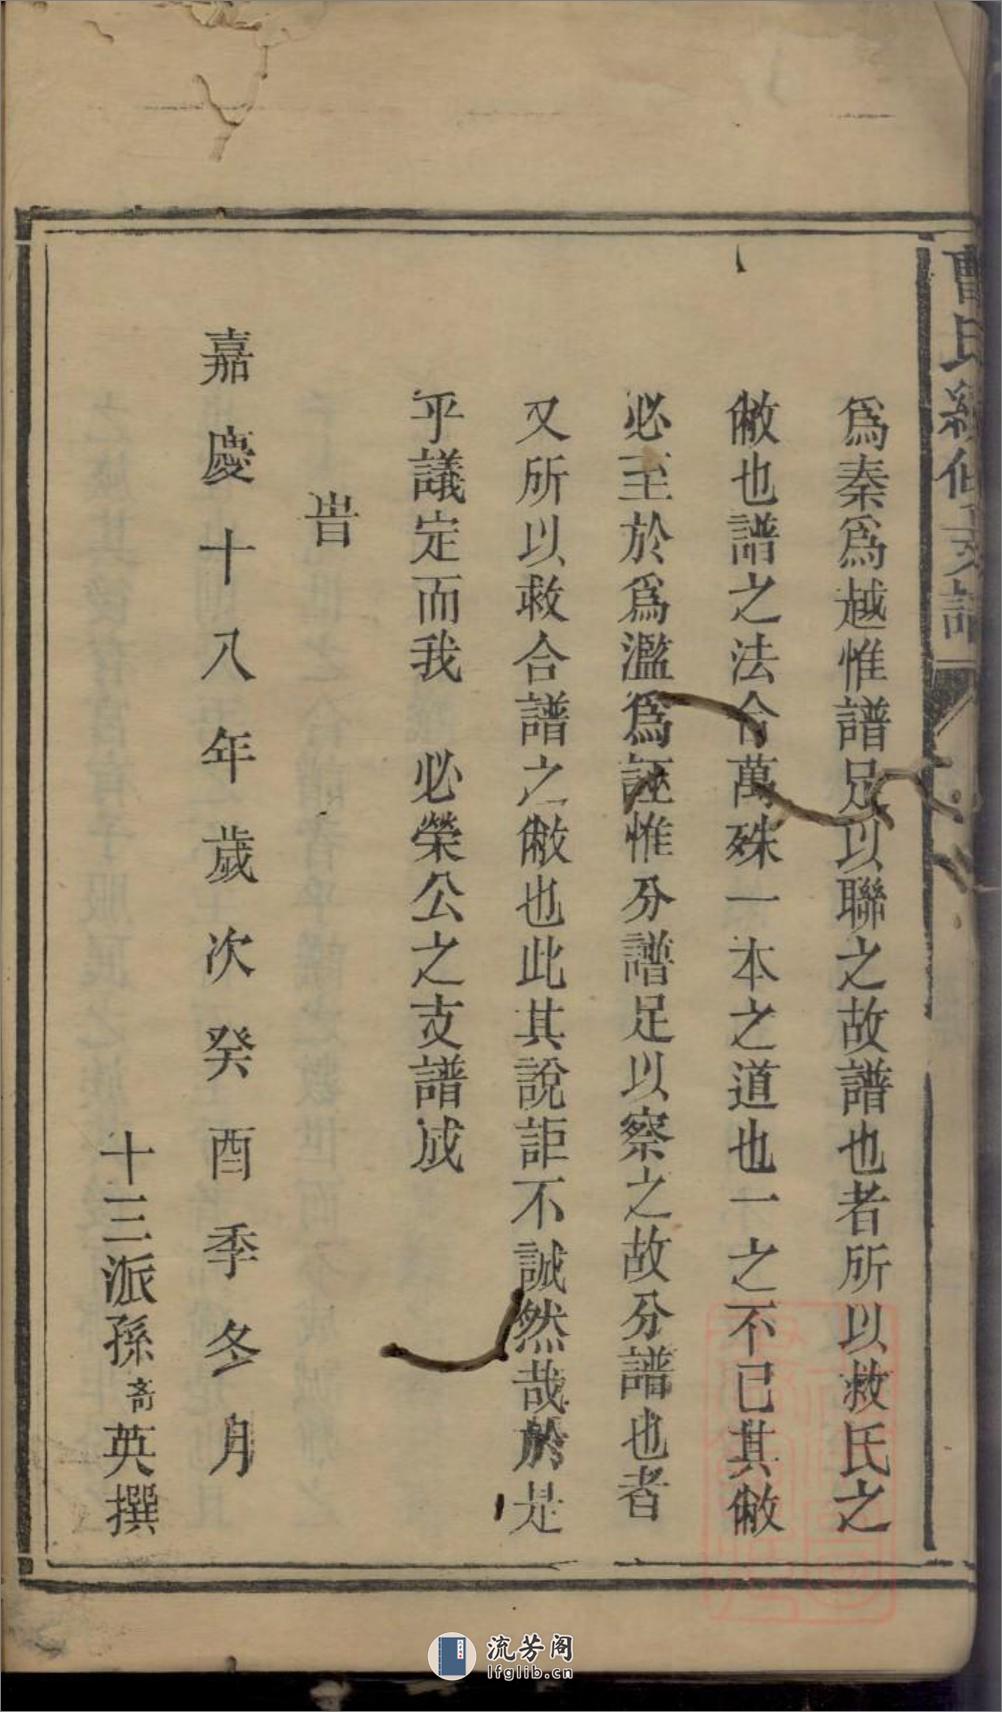 曹氏續修支譜
爲秦爲越惟譜足以聯之故譜也者所以救氏之
敝也譜之法合萬殊一本之道也一之不已其敝
必至於爲濫爲誣惟分譜足以察之故分譜也者
又所以救合譜之敝也此其說詎不誠然哉於是
乎議定而我 必榮公之支譜成
旹
嘉慶十八年歲次癸酉季冬月
十三派孫裔英撰
流芳阁
lfglib.cn